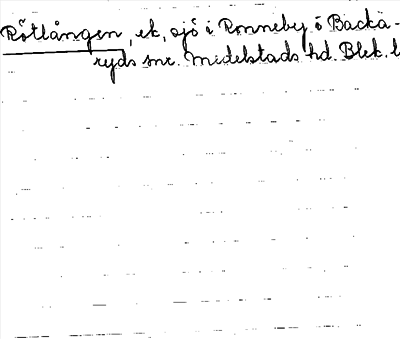 Rötlången, ek, sjö i Ronneby o Backa-
ryds snr. Medelstads hd. Blek. l